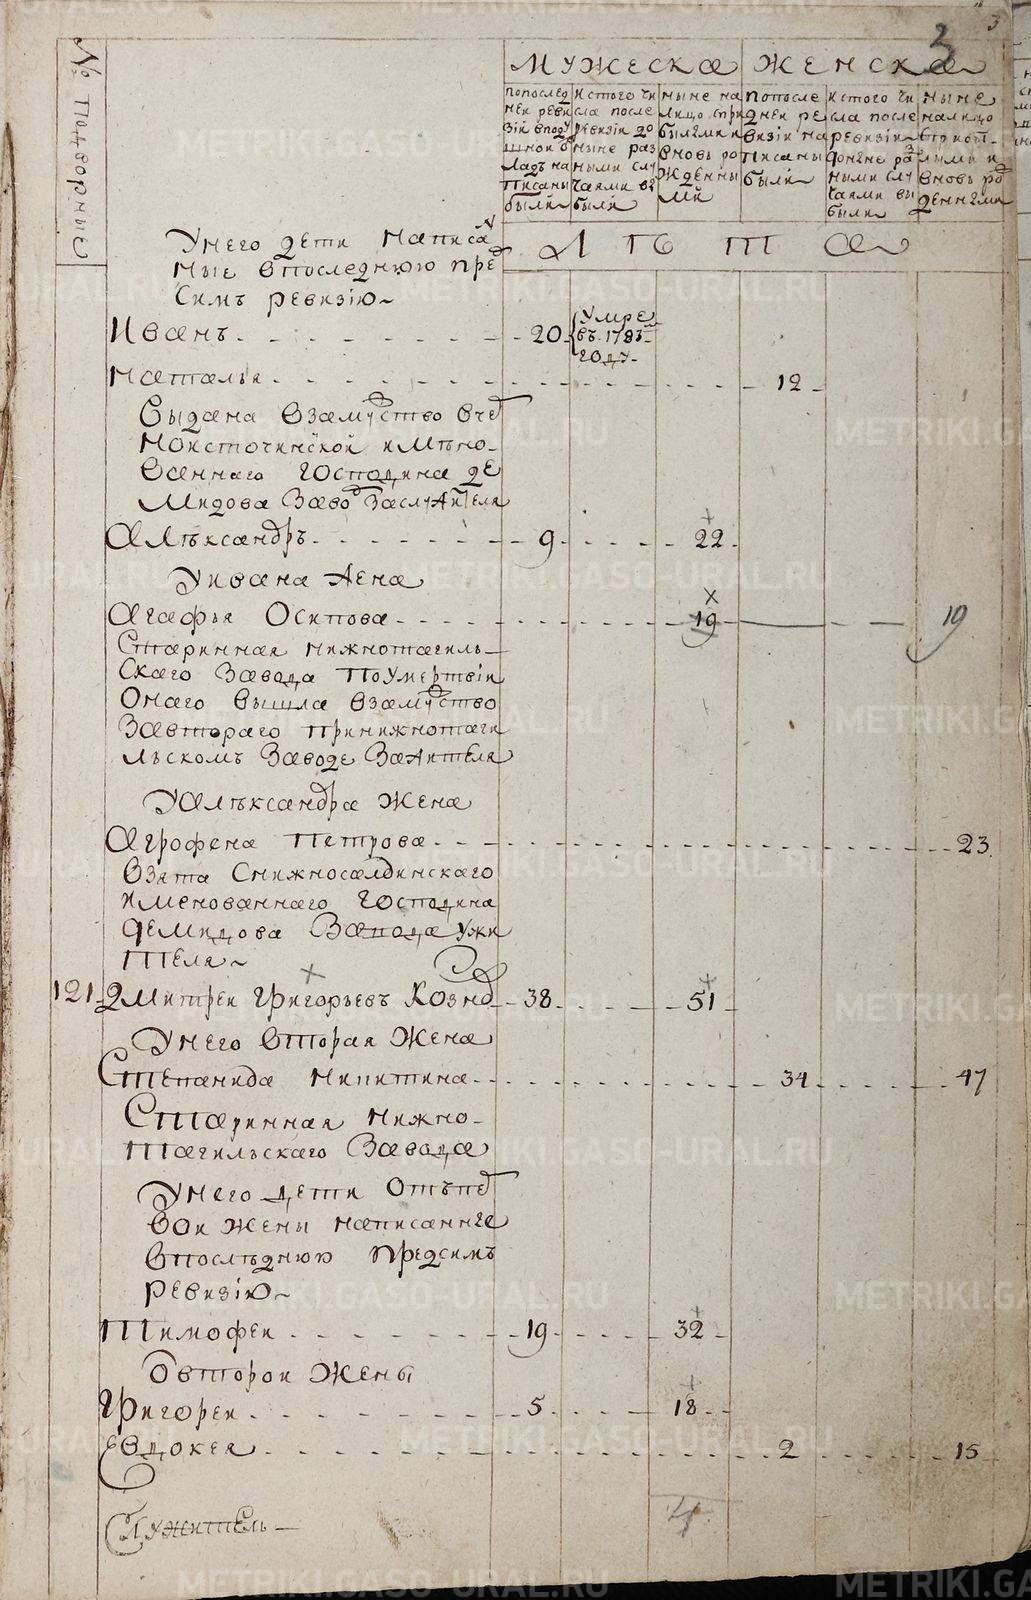 3
3
№ Подворные
МУЖЕСКА ЖЕНСКА
попослед
ней реви
зіи вподу
шной о
ладъ на
писаны
были
Истого чи
сла после
ревизіи до
ныне раз
ными слу
чаями вы
были
ныне на
лицо спри
былыми и
вновь ро
жденны
ми
Попосле
дней ре
визіи на
писаны
были
Истого чи
сла после
ревизіи
доныне ра
ными слу
чаями вы
были
ныне
налицо
сприб
лыми и
вновь ро
денными
Лета
Унего дети написа
ные впоследнюю пре
симъ ревизію
Иванъ 20 Умре
въ 1783
году
Наталья 12
Выдана взамуство вче
ноисточинской имѣно
ваннаго господина де
мидова заво заслужителя
Алѣксандръ 9 22
Уивана Жена
Агафья Осипова 19 19
Старинная нижнотагиль
скаго завода поумертвіи
онаго вышла взамуство
завтораго принижнотаги
льскомъ заводе зажителя
Уалѣксандра жена
Агрофена Петрова 23
взята снижносалдинскаго
именованнаго господина
демидова завода ужи
теля
121 Дмитреи Григорьевъ Козно 38 51
Унего вторая жена
Степанида никитина 34 47
Старинная нижно
тагильскаго завода
Унего дети отъпе
вои жены написанные
впослѣднюю предсимъ
ревизію
Тимофеи 19 32
Овторои жены
Григореи 5 18
Евдокея 2 15
4
Служитель
METRIKI.GASO-URAL.RU